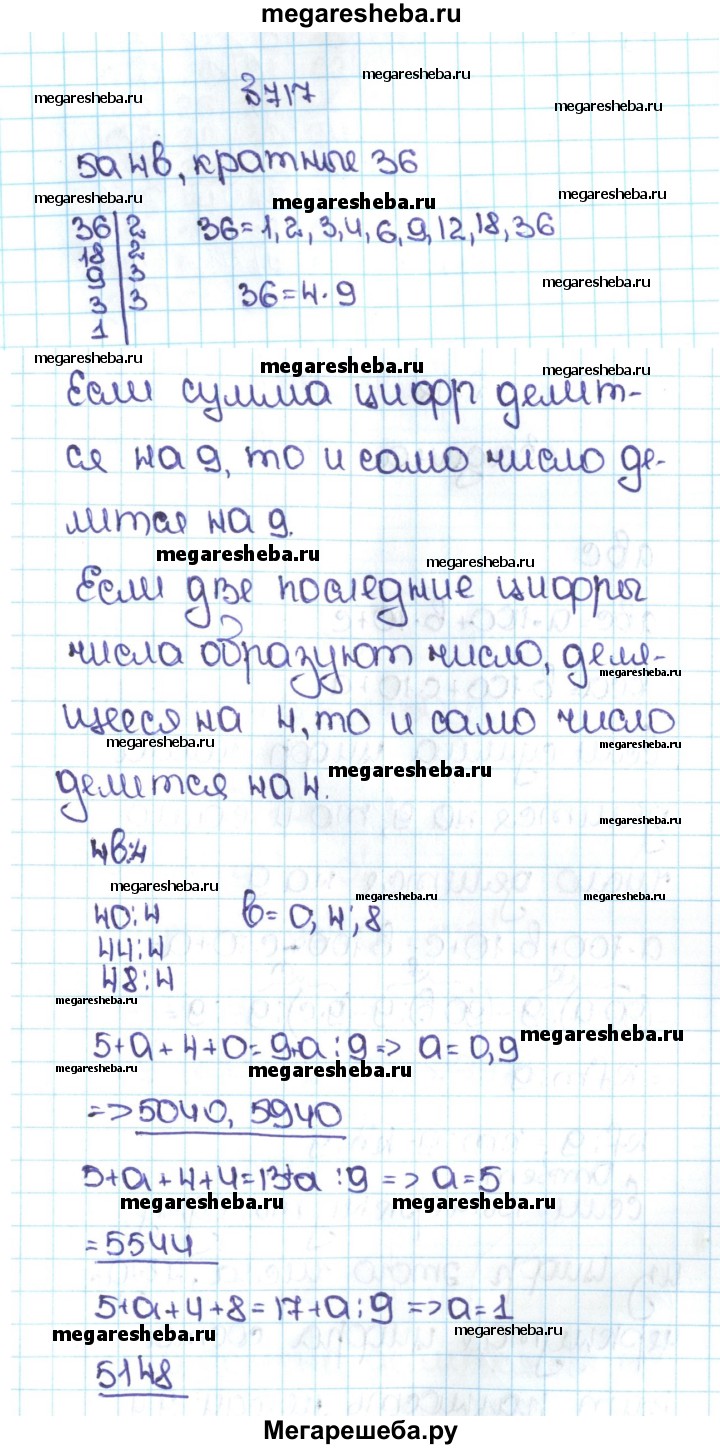 megaresheba.ru
megaresheba.ru
megaresheba.ru
З 717
megaresheba.ru
5а4в, кратные 36
megaresheba.ru
megaresheba.ru
megaresheba.ru
36|2 36=1,2,3,4,6,9,12,18,36
18|2
9|3
megaresheba.ru
3|3 36=4·9
1|
megaresheba.ru
megaresheba.ru
megaresheba.ru
Если сумма цифр делит-
ся на 9, то и само число де-
лится на 9.
megaresheba.ru
megaresheba.ru
Если две последние цифры
числа образуют число, деля-
megaresheba.ru
щееся на 4, то и само число
megaresheba.ru
megaresheba.ru
megaresheba.ru
делится на 4.
megaresheba.ru
4в:4
megaresheba.ru
megaresheba.ru
megaresheba.ru
40:4 в=0,4,8
44:4
48:4
megaresheba.ru
5+а+4+0=9+а:9=> а=0,9
megaresheba.ru
megaresheba.ru
megaresheba.ru
=>5040, 5940
5+а+4+4=13+а:9 => а=5
megaresheba.ru
megaresheba.ru
=5544
5+а+4+8=17+а:9 =>а=1
megaresheba.ru
megaresheba.ru
5148
Мегарешеба.ру